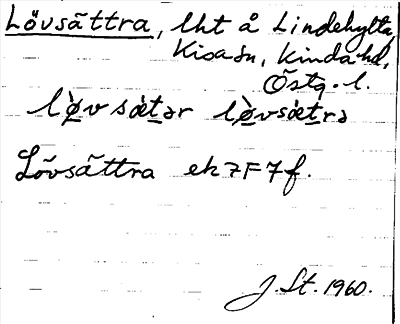 Lövsättra, lht å Lindehytta,
Kisa sn, Kinda hd,
Östg. l.
lø̀vsætər lø̀vsætra
Lövsättra ek 7F7f.
J. St. 1960.